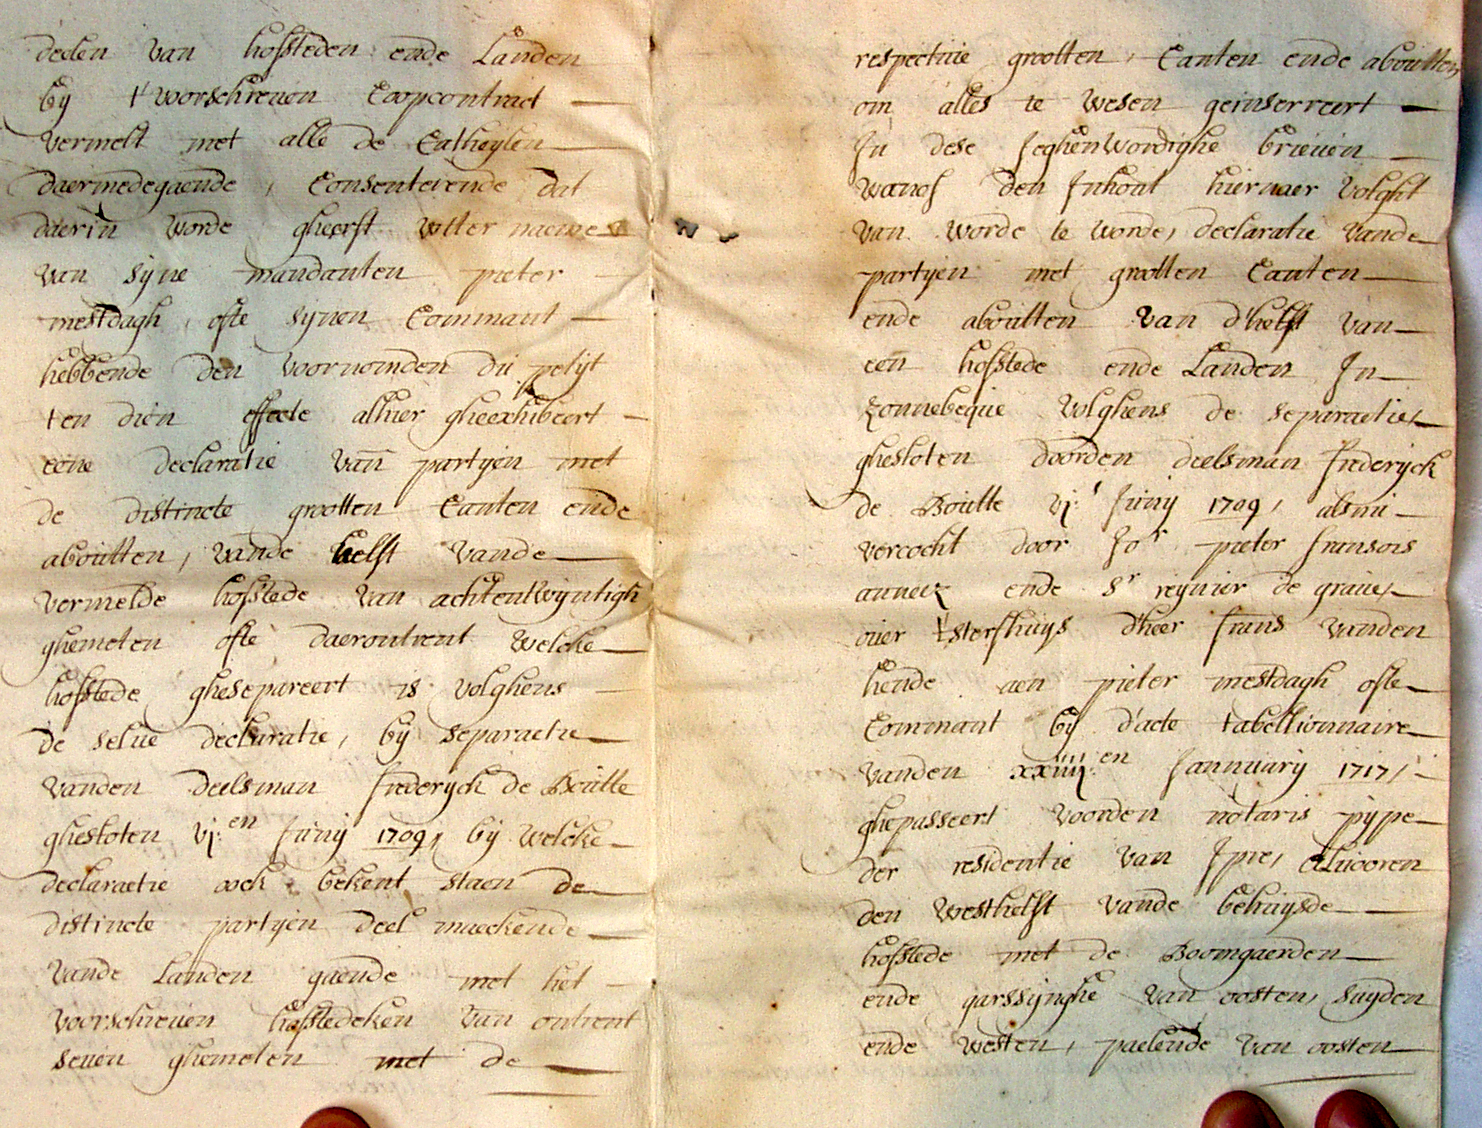 deelen van hofsteden ende Landen
bij t'voorschreven Coopcontract
vermelt met alle de Catheylen
daermedegaende, Consenterende dat
daerin worde gheerft vutter naeme
van syne mandanten pieter
mestdagh, ofte synen Commant
hebbende den voornomden du petyt
ten dien effecte alhier gheexhibeert
eene declaratie van partyen met
de distincte grootten Canten ende
aboutten, vande helft vande
vermelde hofstede van achtentwyntigh
ghemeten ofte daerontrent welcke
hofstede ghesepareert is volghens
de selve declaratie, bij separaetie
vanden deelsman frederyck de Boutte
ghesloten vj.en Junij 1709, bij welcke
declaraetie oock bekent staen de
distincte partyen deel maeckende
vande Landen gaende met het
voorschreven hofstedeken van ontrent
seven ghemeten met de
respective grootten, Canten ende aboutten
om alles te wesen geinserreert
In dese Jeghenwordighe brieven
wanof den Inhout hiernaer volght
van worde te worde, declaratie vande
partyen met grootten Canten
ende aboutten van d'helft van
een hofstede ende Landen In
Zonnebeque volghens de separaetie,
ghesloten doorden deelsman frederyck
de Boutte vj. Junij 1709, alsnu
vercocht door Jor pieter fransois
anneix ende Sr reynier de grave,
over tsterfhuys d'heer frans vanden
hende aen pieter mestdagh ofte
Commant bij d'acte tabellionnaire
vanden xxiiij.en Jannuary 1717,
ghepasseert voorden notaris pype
der residentie van Ipre, alvooren
den westhelft vande behuysde
hofstede met de Boomgaerden
ende garssynghe van oosten, suyden
ende westen, paelende van oosten